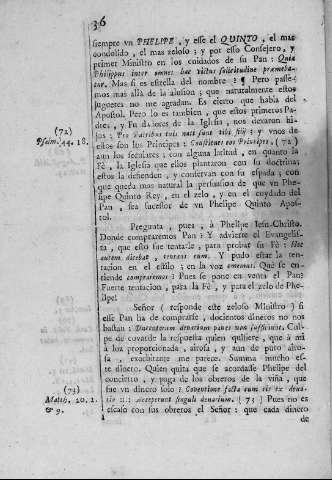 36
siempre vn PHELIPE, y esse el QUINTO, el mas
condolido, el mas zeloso: y por esso Consejero, y
primer Ministro en los cuidados de su Pan: Quia
Philippus inter omnes hac victus sollicitudine
Mas si es estrella del nombre? ¶ Pero passe-
mos mas allà de la alusion; que naturalmente estos
juguetes no me agradan. Es cierto que habla del
Apostol. Pero lo es tambien, que estos primeros Pa-
dres, y Fundadores de la Iglesia, nos dexaron hi-
jos: Pro Patribus tuis nati sunt tibi filij: y vnos de
(72)
Psalm. 44. 18.
ellos son los Principes: Constitues eos Principes. (72)
aun los seculares; con alguna latitud, en quanto la
Fè, la Iglesia que ellos plantaron con su doctrina;
estos la defienden, y conservan con su espada; con
que queda mas natural la persuasion de que vn Phe-
lipe Quinto Rey, en el zelo, y en el cuydado del
Pan, sea sucessor de vn Phelipe Quinto Apos-
tol.
Pregunta, pues, à Phelipe Jesu-Christo.
Donde compraremos Pan? Y advierte el Evangelis-
ta, que esto fue tentarle, para probar su Fè: Hoc
autem dicebat, tentans eum. Y pudo estar la ten-
tacion en el estilo; en la voz ememus. Què se en-
tiende compraremos? Pues se pone en venta el Pan?
Fuerte tentacion, para la Fè, y para el zelo de Phe-
lipe!
Señor (responde este zeloso Ministro) si
esse Pan ha de comprarse, docientos dineros no nos
bastan: Ducentorum denariorum panes non sufficiunt. Cul-
pe de covarde la respuesta quien quisiere, que à mi
proporcionada, ayrosa, y aun de puro ayro-
sa, exorbitante me parece. Summa mucho es-
te dinero. Quien quita que se acordasse Phelipe del
concierto, y paga de los obreros de la viña, que
fue vn dinero solo: Conventione facta cum eis ex dena-
(73)
Matth. 20. 2.
& 9.
rio: acceperunt singuli denarium. (73) Pues no es
escaso con sus obreros el Señor: que cada dinero
de